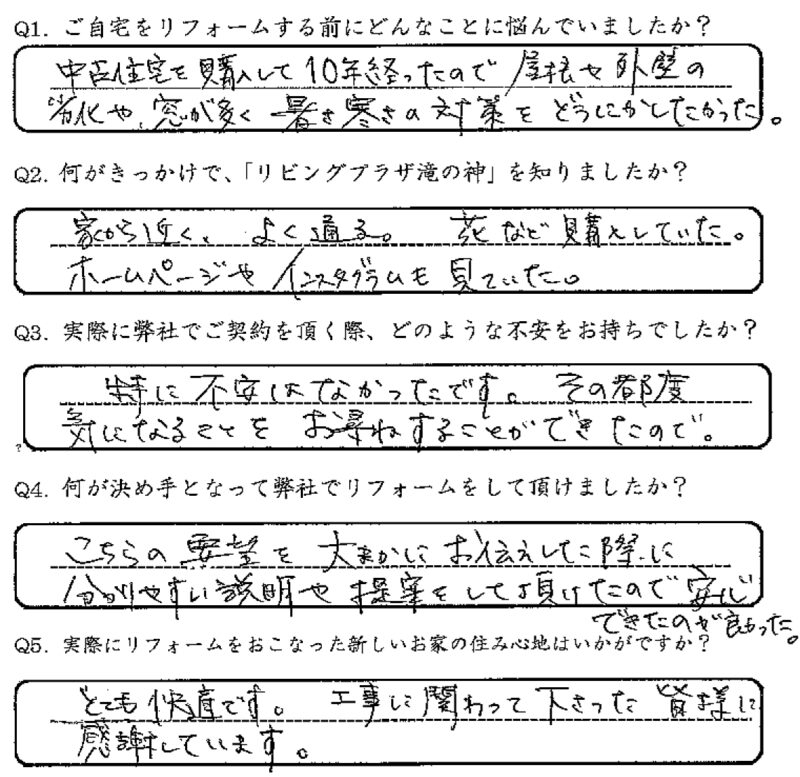 Q1. ご自宅をリフォームする前にどんなことに悩んでいましたか?
中古住宅を購入して10年経ったので屋根や外壁の
劣化や、窓が多く暑さ寒さの対策をどうにかしたかった。
Q2. 何がきっかけで、「リビングプラザ滝の神」を知りましたか?
家から近く、よく通る。花など購入していた。
ホームページやインスタグラムも見ていた。
Q3. 実際に弊社でご契約を頂く際、どのような不安をお持ちでしたか?
特に不安はなかったです。その都度
気になることをお尋ねすることができたので。
Q4. 何が決め手となって弊社でリフォームをして頂けましたか?
こちらの要望を大まかにお伝えした際に
分かりやすい説明や提案をして頂けたので安心
できたのが良かった。
Q5. 実際にリフォームをおこなった新しいお家の住み心地はいかがですか?
とても快適です。工事に関わって下さった皆様に
感謝しています。